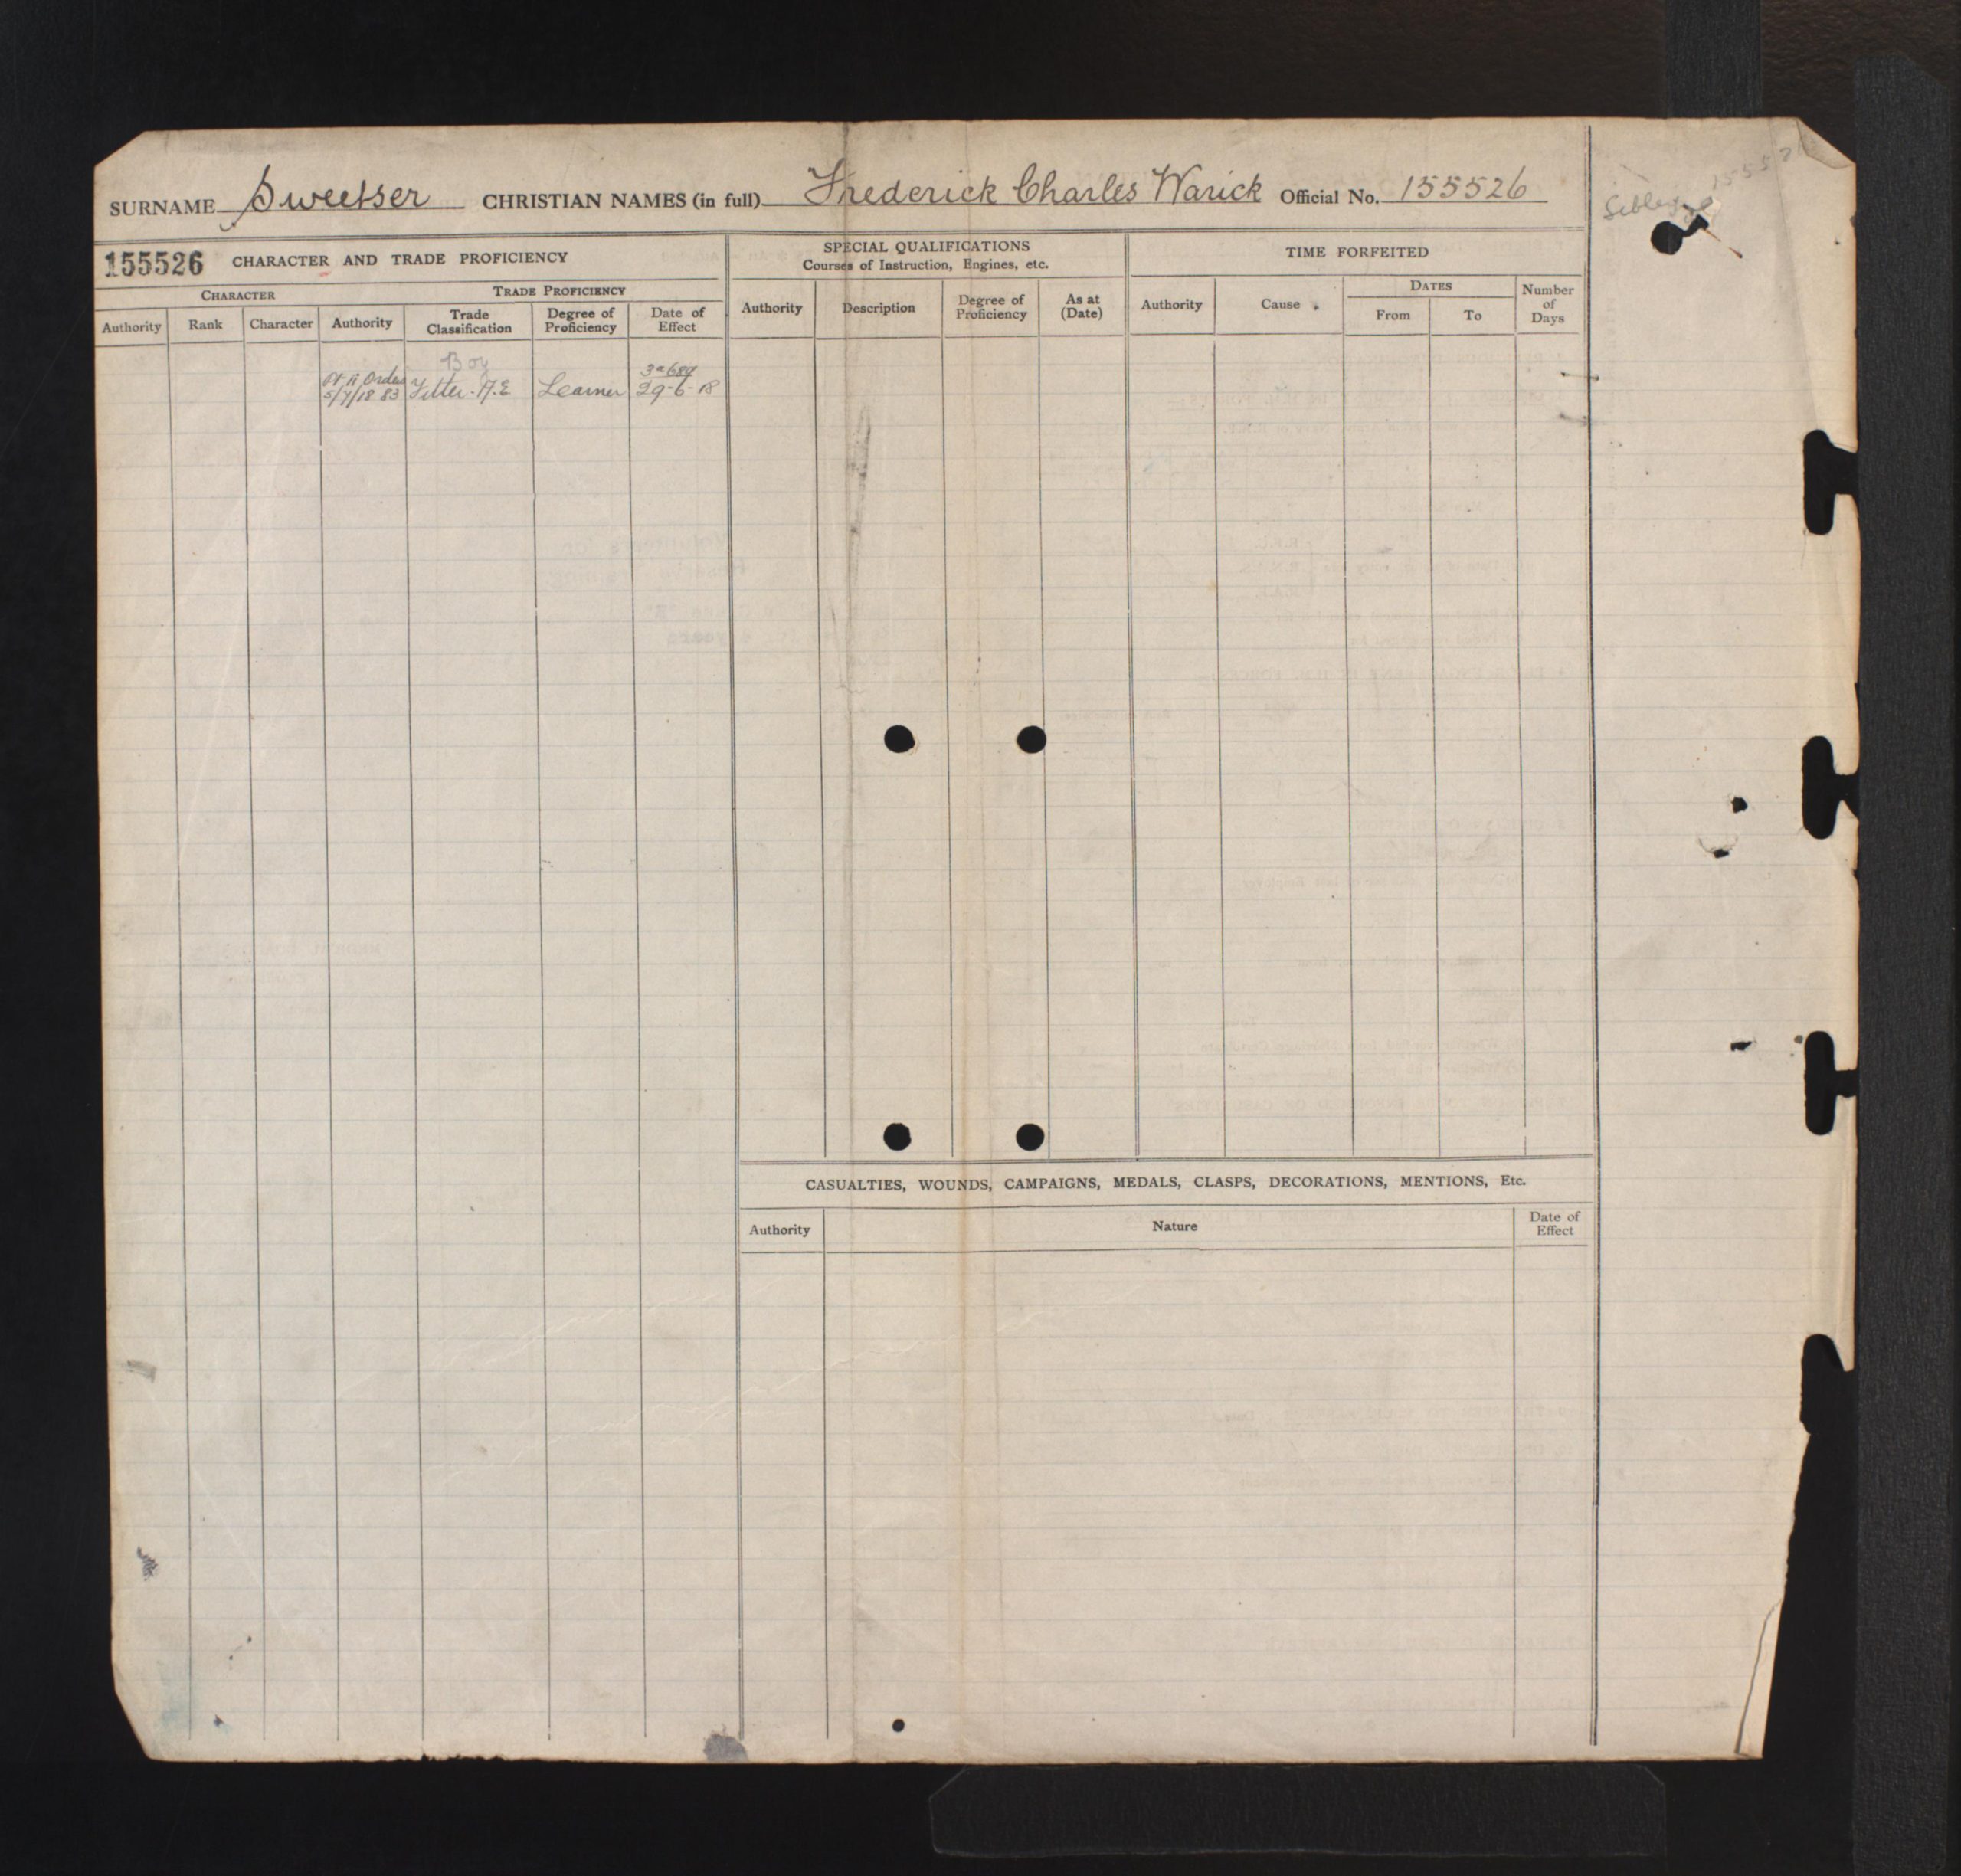 SURNAME Sweetser CHRISTIAN NAMES (in full) Frederick Charles Warick Official No. 155526
155526 CHARACTER AND TRADE PROFICIENCY
CHARACTER TRADE PROFICIENCY
Authority Rank Character Authority Trade Classification Degree of Proficiency Date of Effect
SPECIAL QUALIFICATIONS
Courses of Instruction, Engines, etc.
Authority Description Degree of Proficiency As at (Date)
TIME FORFEITED
Authority Cause DATES From To Number of Days
Boy
Pt II Orders
5/7/18 83 Fitter. A.E Learner 29-6-18
CASUALTIES, WOUNDS, CAMPAIGNS, MEDALS, CLASPS, DECORATIONS, MENTIONS, Etc.
Authority Nature Date of Effect